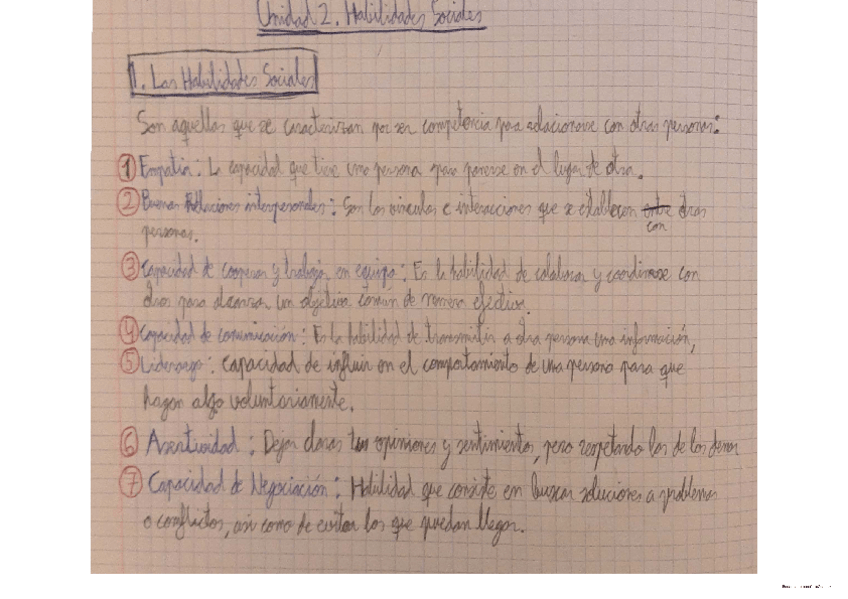 Unidad 2. Habilidades Sociales
1. Las Habilidades Sociales
Son aquellas que se caracterizan por ser competencia para relacionarse con otras personas:
1 Empatía: La capacidad que tiene una persona para ponerse en el lugar de otra.
2 Buenas Relaciones interpersonales: Son los vínculos e interacciones que se establecen entre otras
con
personas.
3 Capacidad de cooperar y trabajar en equipo: Es la habilidad de colaborar y coordinarse con
otros para alcanzar un objetivo común de manera efectiva.
4 Capacidad de comunicación: Es la habilidad de transmitir a otra persona una información,
5 Liderazgo: capacidad de influir en el comportamiento de una persona para que
hagan algo voluntariamente.
6 Asertividad: Dejar claras tus opiniones y sentimientos, pero respetando los de los demas
7 Capacidad de Negociación: Habilidad que consiste en buscar soluciones a problemas
o conflictos, asi como de evitar los que puedan llegar.